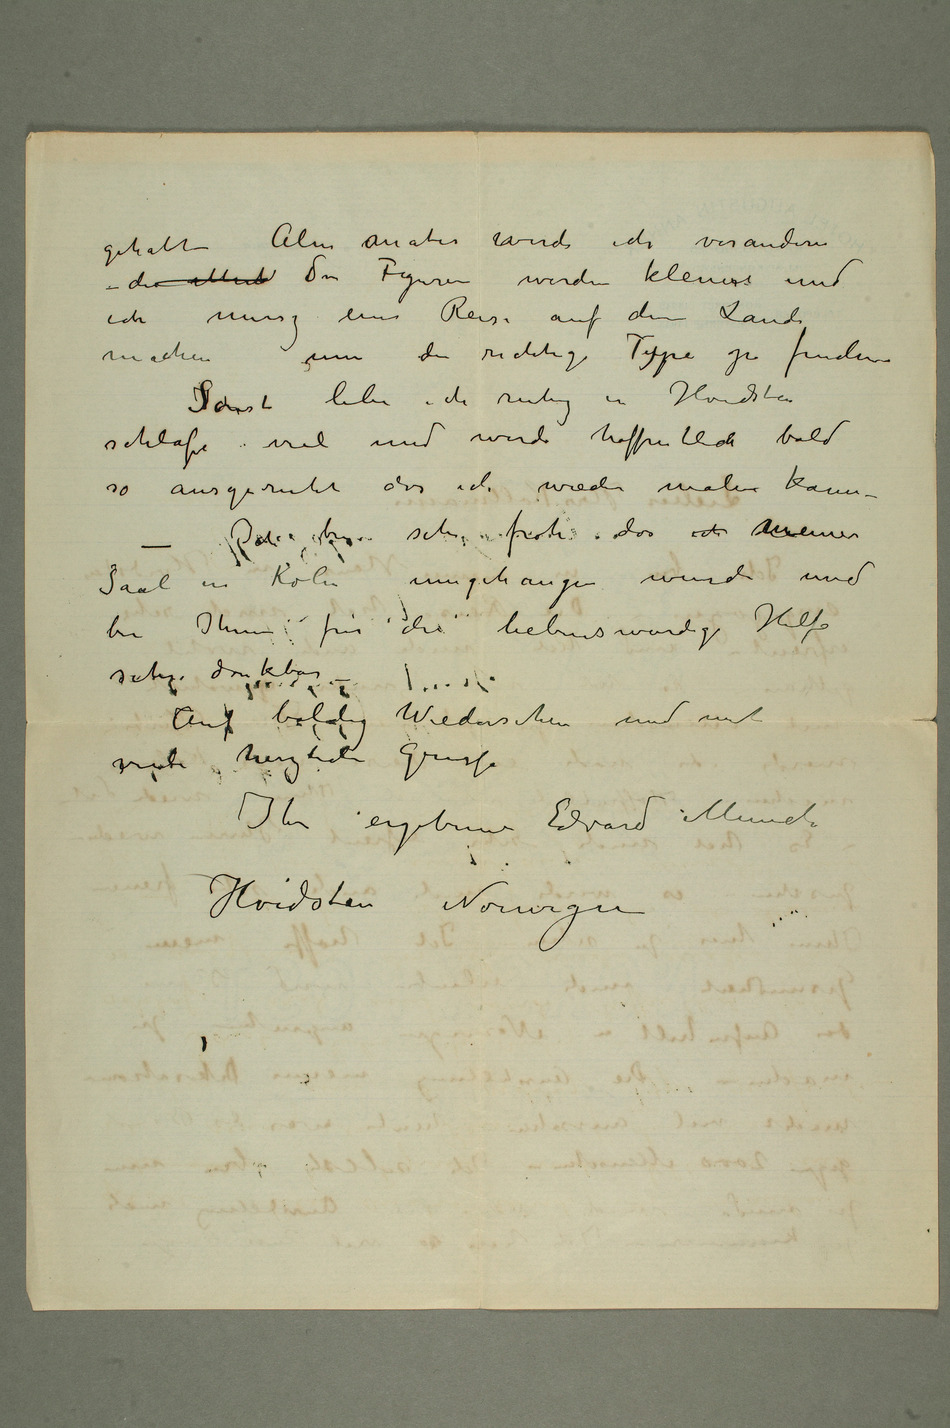 gehabt Alm mater werde ich verandern
– die Figuren werden kleiner und
ich musz eine Reise auf dem Lande
machen um die richtige Type zu finden
Sonst lebe ich ruhig in Hvidsten
schlafe viel und werde hoffentlich bald
so ausgeruht das ich wieder malen kann –
– Ich bin sehr froh das meiner
Saal in Köln umgehangen wurde und
bin Ihnen für die liebenswurdige Hilfe
sehr dankbar –
Auf baldig Wiedersehen und mit
viele herzliche Grusse
Ihr ergebener Edvard Munch
Hvidsten Norwegen